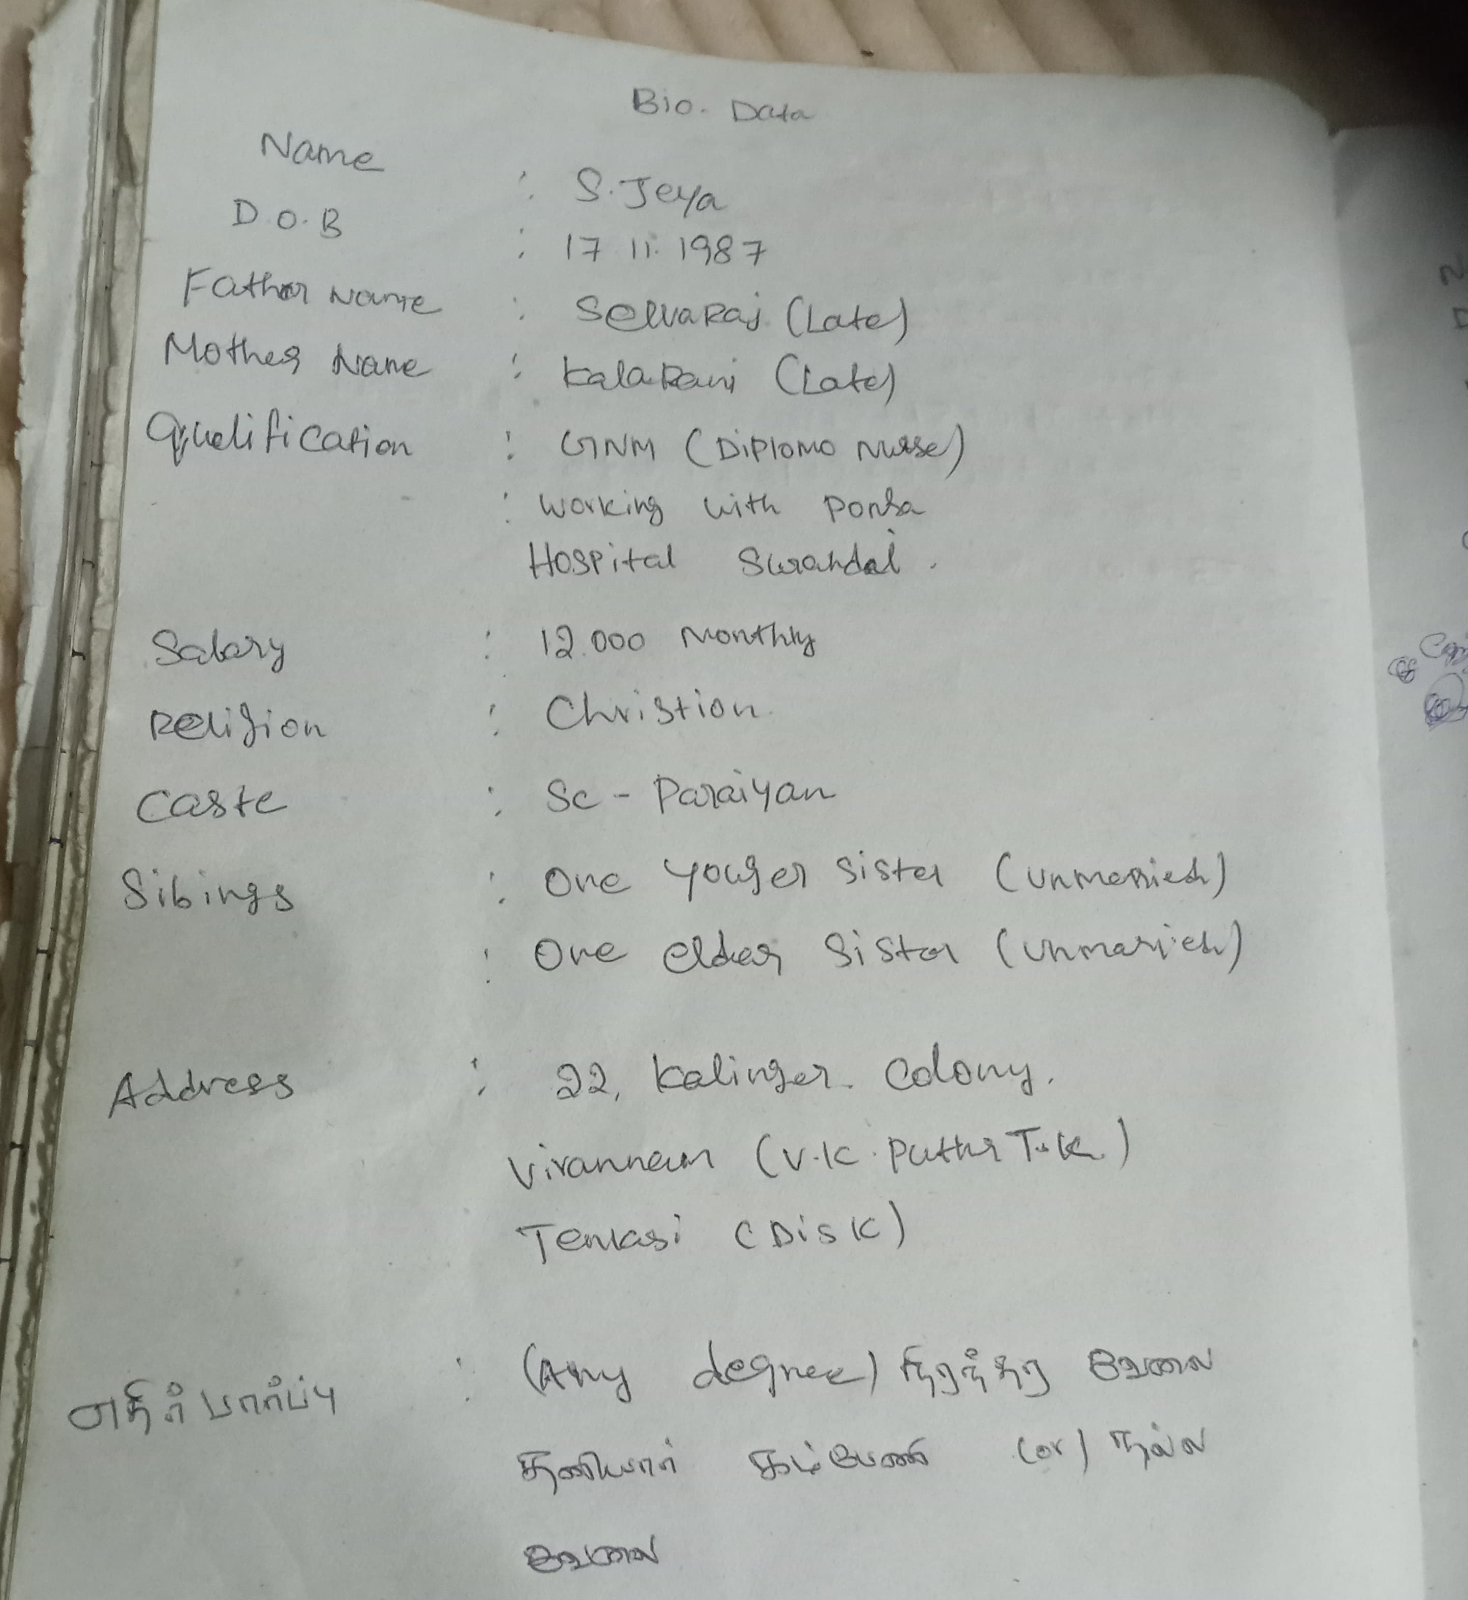 Bio. Data
Name : S. Jeya
D.O.B : 17 11. 1987
Father Name : Selvaraj (Late)
Mother Name : kalaRani (Late)
Qulification : GNM (Diplomo Nurse)
: working with Ponsa
Hospital Surandai.
Salary : 12.000 Monthly
Religion : Christion.
Caste : Sc - Paraiyan
Sibings : One youger sister (unmarried)
: One elder Sister (unmaried)
Address : 22, kalinger Colony.
Virannam (V.K. Puthur T.K.)
Tenkasi (Disk)
எதிர்பார்ப்பு : (Any degree) நிரந்தர வேலை
தனியார் கம்பேணி (or) நல்ல
வேலை